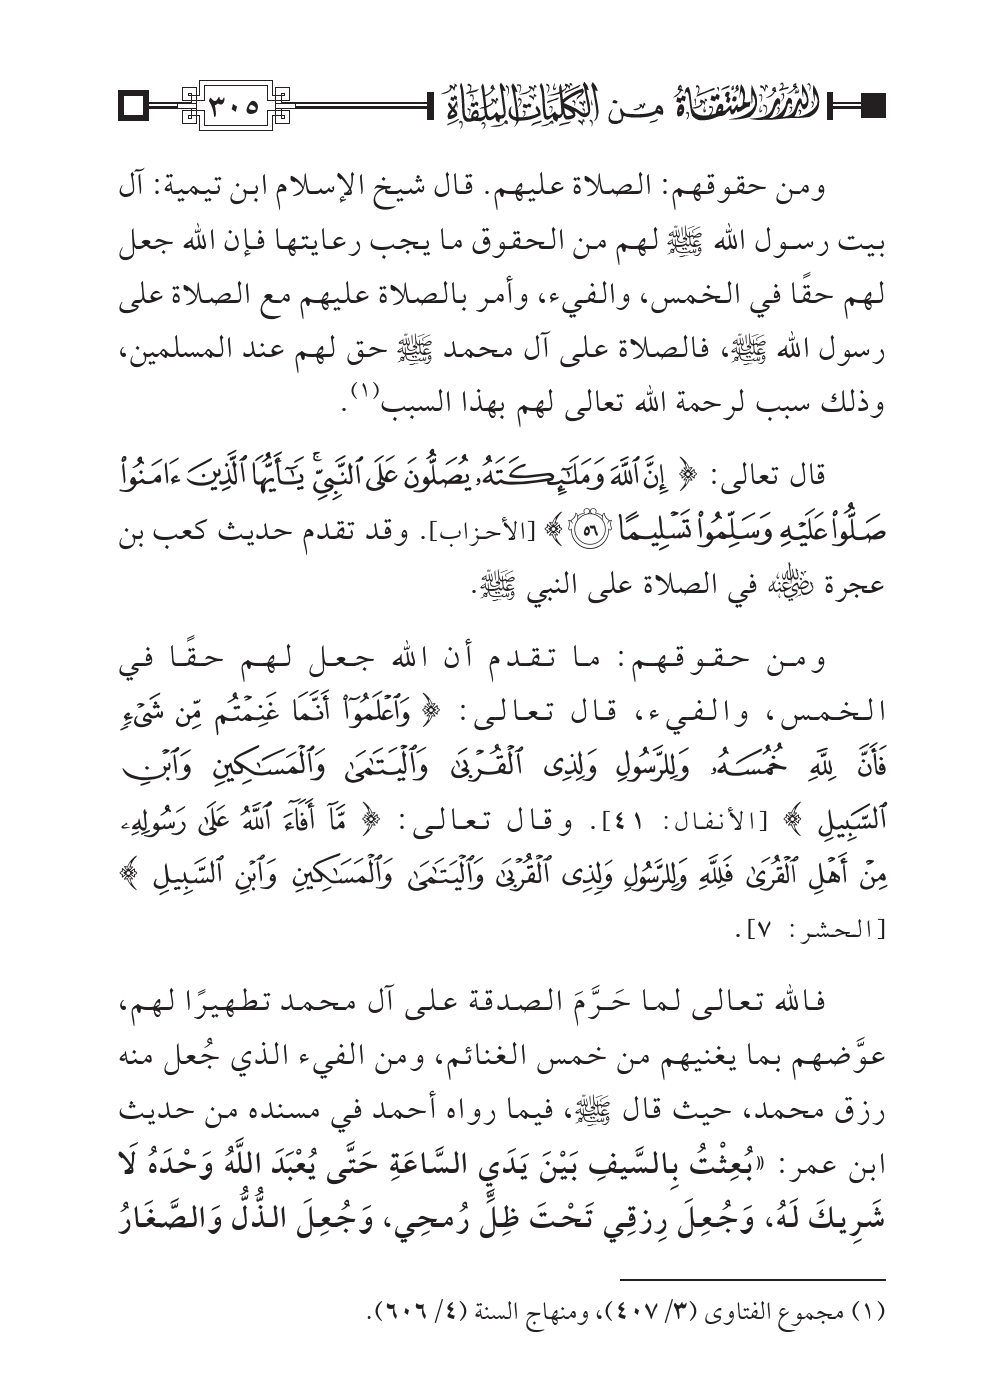 الدرر المنتقاة من الكلمات الملقاة ٣٠٥
ومن حقوقهم: الصلاة عليهم. قال شيخ الإسلام ابن تيمية: آل
بيت رسول الله ﷺ لهم من الحقوق ما يجب رعايتها فإن الله جعل
لهم حقًا في الخمس، والفيء، وأمر بالصلاة عليهم مع الصلاة على
رسول الله ﷺ، فالصلاة على آل محمد ﷺ حق لهم عند المسلمين،
وذلك سبب لرحمة الله تعالى لهم بهذا السبب(١).
قال تعالى: ﴿ إِنَّ ٱللَّهَ وَمَلَٰٓئِكَتَهُۥ يُصَلُّونَ عَلَى ٱلنَّبِيِّۚ يَٰٓأَيُّهَا ٱلَّذِينَ ءَامَنُواْ
صَلُّواْ عَلَيْهِ وَسَلِّمُواْ تَسْلِيمًا ٥٦ ﴾ [الأحزاب]. وقد تقدم حديث كعب بن
عجرة رضي الله عنه في الصلاة على النبي ﷺ.
ومن حقوقهم: ما تقدم أن الله جعل لهم حقًا في
الخمس، والفيء، قال تعالى: ﴿ وَٱعْلَمُوٓاْ أَنَّمَا غَنِمْتُم مِّن شَىْءٍ
فَأَنَّ لِلَّهِ خُمُسَهُۥ وَلِلرَّسُولِ وَلِذِى ٱلْقُرْبَىٰ وَٱلْيَتَٰمَىٰ وَٱلْمَسَٰكِينِ وَٱبْنِ
ٱلسَّبِيلِ ﴾ [الأنفال: ٤١]. وقال تعالى: ﴿ مَّآ أَفَآءَ ٱللَّهُ عَلَىٰ رَسُولِهِۦ
مِنْ أَهْلِ ٱلْقُرَىٰ فَلِلَّهِ وَلِلرَّسُولِ وَلِذِى ٱلْقُرْبَىٰ وَٱلْيَتَٰمَىٰ وَٱلْمَسَٰكِينِ وَٱبْنِ ٱلسَّبِيلِ ﴾
[الحشر: ٧].
فالله تعالى لما حَرَّمَ الصدقة على آل محمد تطهيرًا لهم،
عوَّضهم بما يغنيهم من خمس الغنائم، ومن الفيء الذي جُعل منه
رزق محمد، حيث قال ﷺ، فيما رواه أحمد في مسنده من حديث
ابن عمر: «بُعِثْتُ بِالسَّيفِ بَيْنَ يَدَيِ السَّاعَةِ حَتَّى يُعْبَدَ اللَّهُ وَحْدَهُ لَا
شَرِيكَ لَهُ، وَجُعِلَ رِزقِي تَحْتَ ظِلِّ رُمحِي، وَجُعِلَ الذُّلُّ وَالصَّغَارُ
(١) مجموع الفتاوى (٣/ ٤٠٧)، ومنهاج السنة (٤/ ٦٠٦).